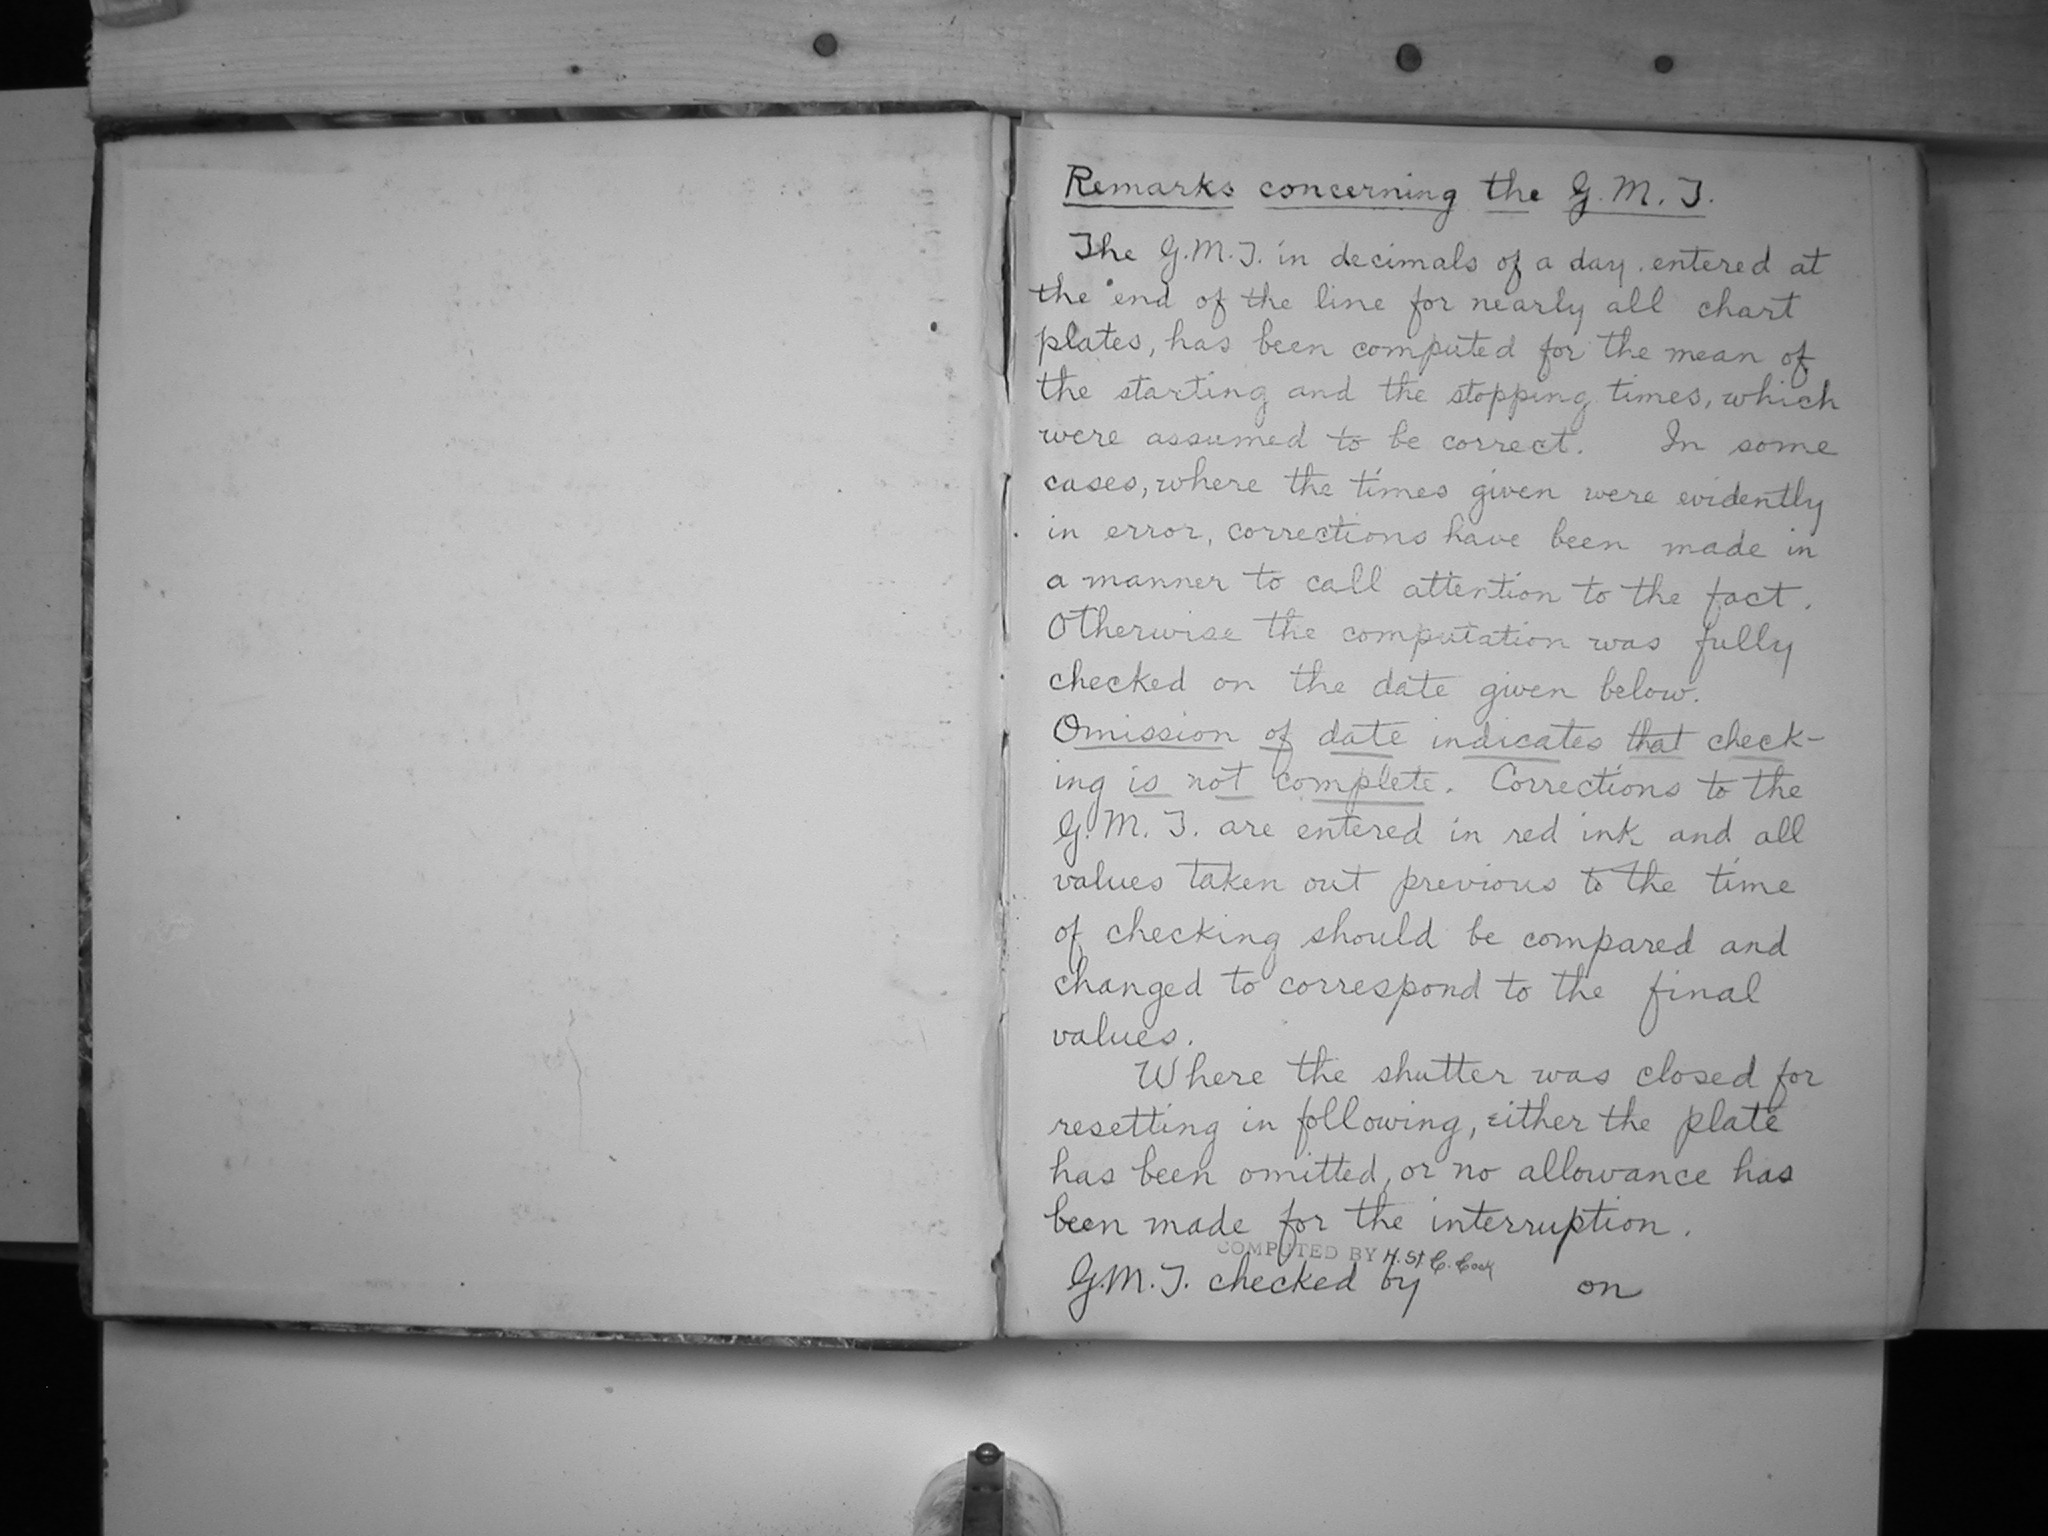 Remarks concerning the G.M.T.
The G.M.T. in decimals of a day, entered at
the end of the line for nearly all chart
plates, has been computed for the mean of
the starting and the stopping times, which
were assumed to be correct. In some
cases, where the times given were evidently
in error, corrections have been made in
a manner to call attention to the fact.
Otherwise the computation was fully
checked on the date given below.
Omission of date indicates that check-
ing is not complete. Corrections to the
G.M.T. are entered in red ink and all
values taken out previous to the time
of checking should be compared and
changed to correspond to the final
values.
Where the shutter was closed for
resetting in following, either the plate
has been omitted, or no allowance has
been made for the interruption.
COMPUTED BY H. St. C. Cook
G.M.T. checked by on